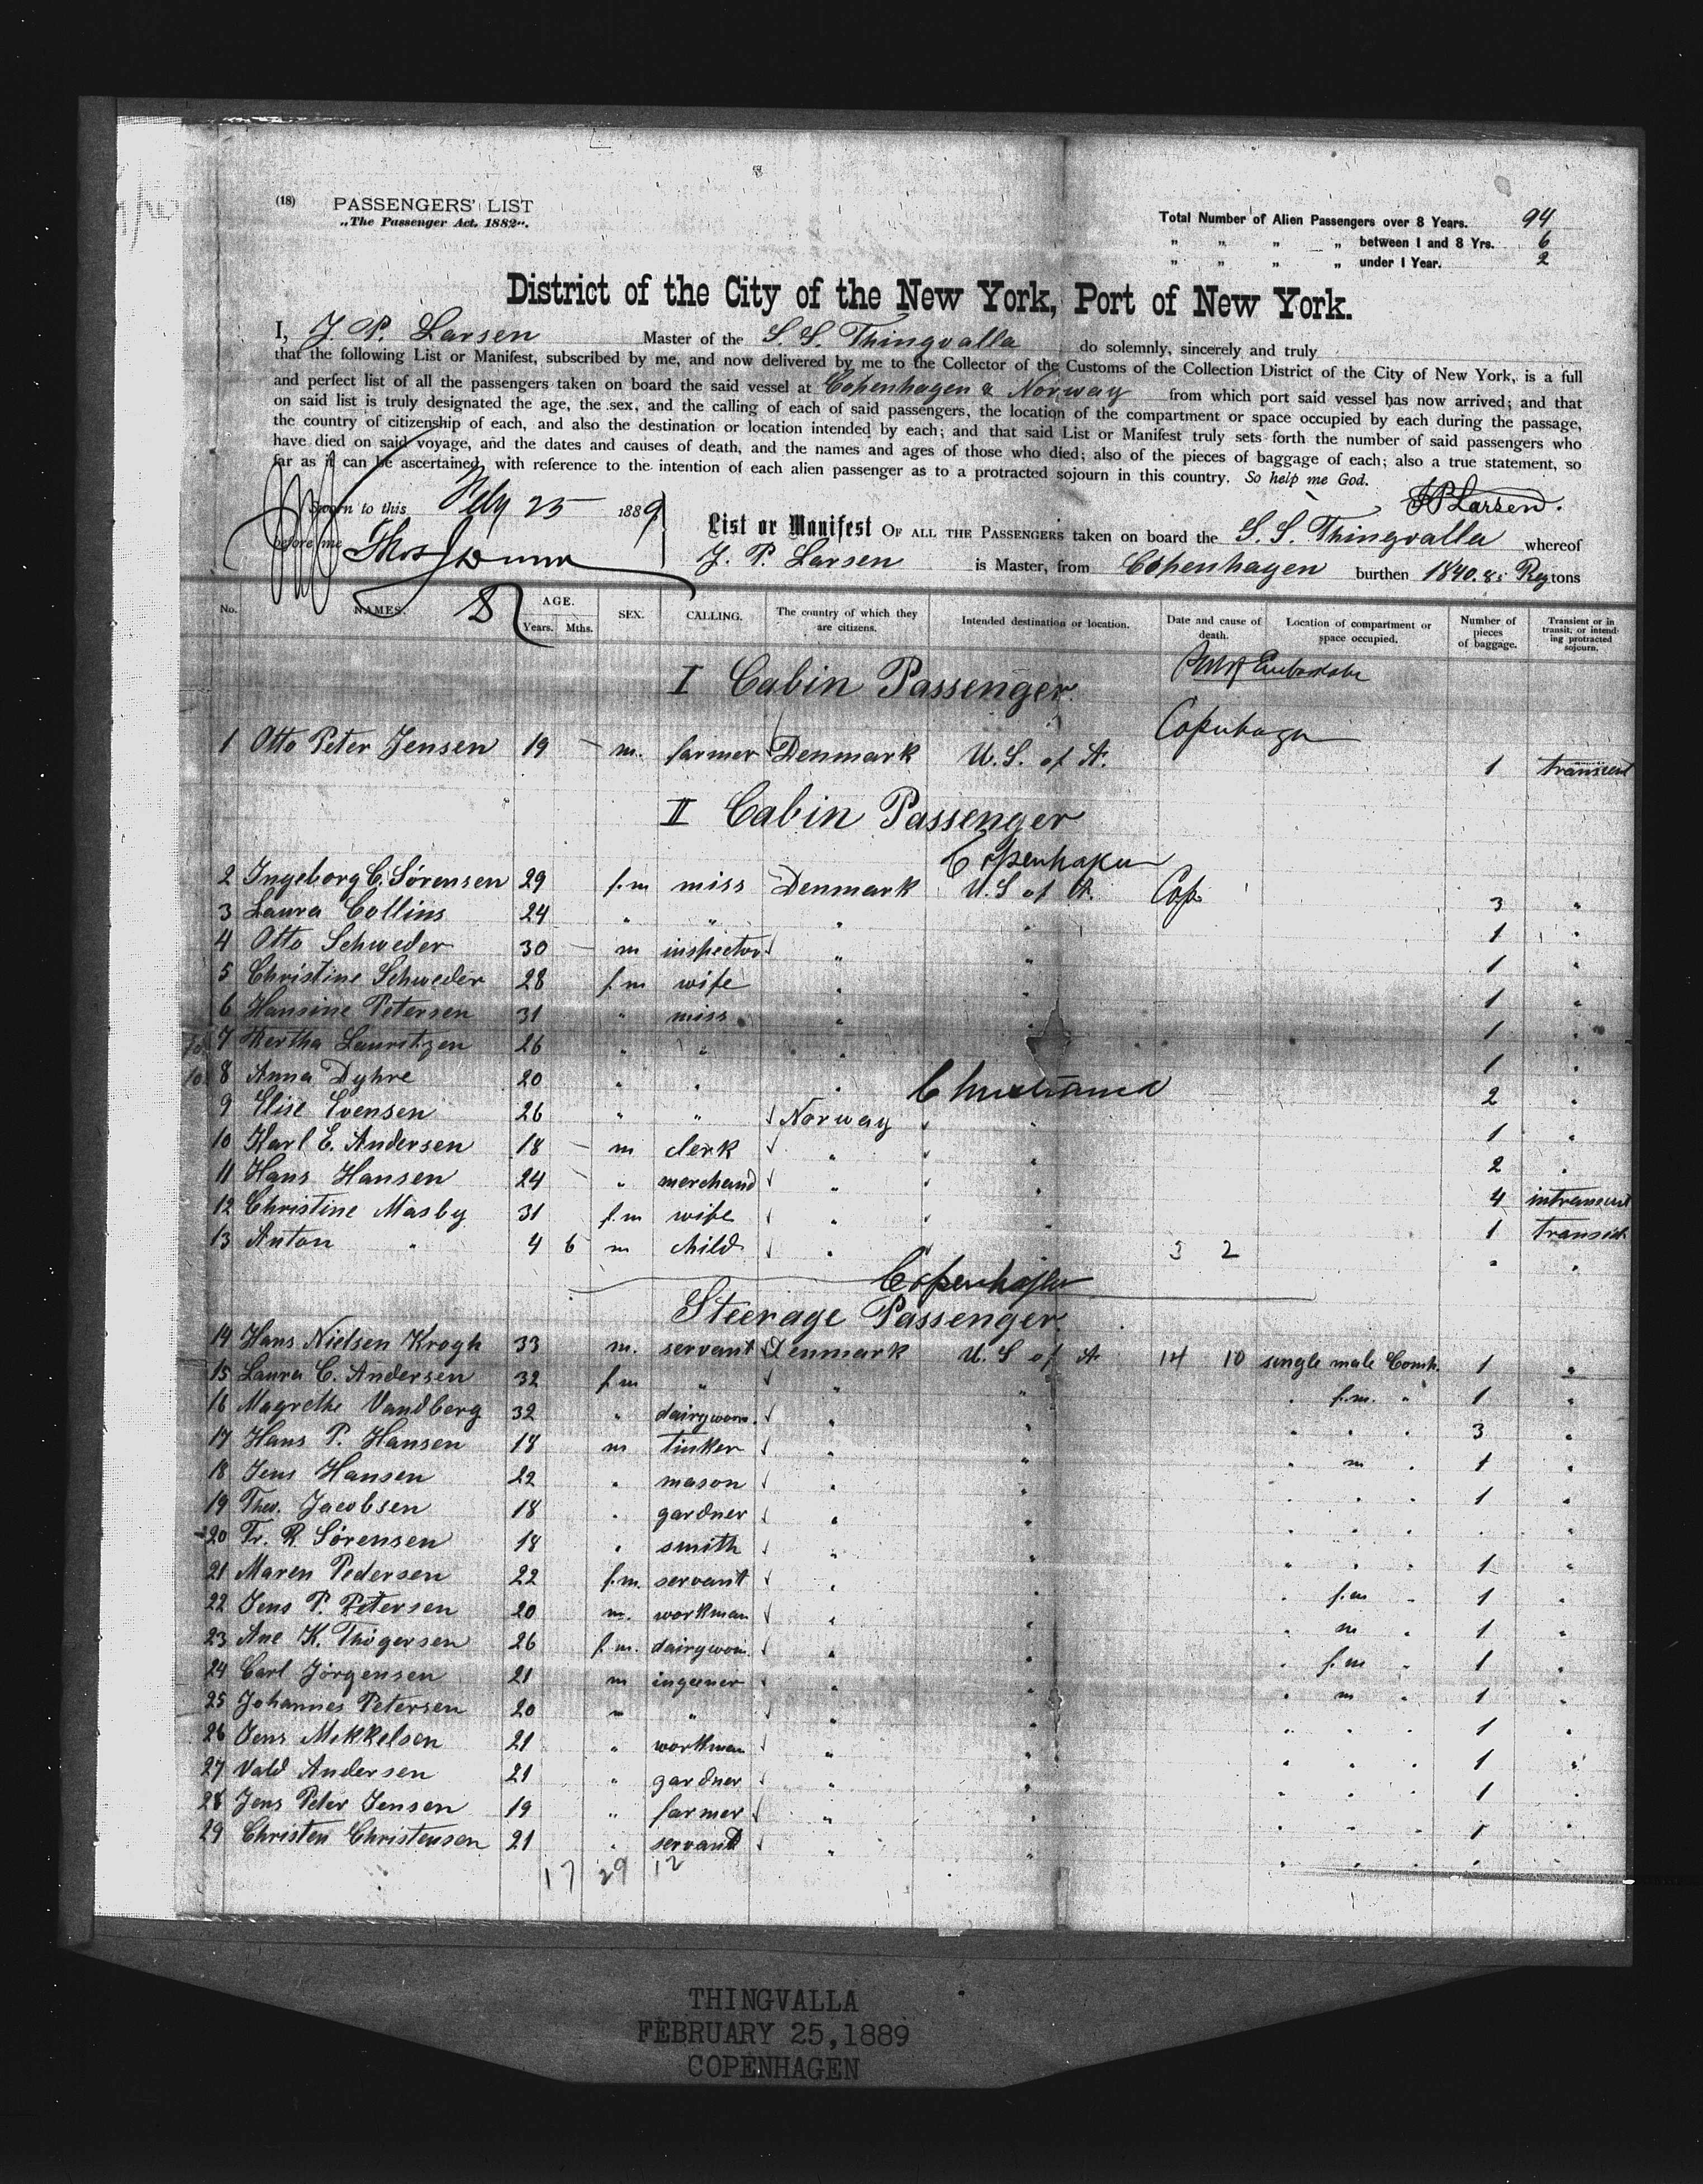 (18) PASSENGERS' LIST
„The Passenger Act. 1882“.
Total Number of Alien Passengers over 8 Years. 94
„ „ „ „ between 1 and 8 Yrs. 6
„ „ „ „ under 1 Year. 2
District of the City of the New York, Port of New York.
I, J. P. Larsen Master of the S. S. Thingvalla do solemnly, sincerely and truly
that the following List or Manifest, subscribed by me, and now delivered by me to the Collector of the Customs of the Collection District of the City of New York, is a full
and perfect list of all the passengers taken on board the said vessel at Copenhagen & Norway from which port said vessel has now arrived; and that
on said list is truly designated the age, the sex, and the calling of each of said passengers, the location of the compartment or space occupied by each during the passage,
the country of citizenship of each, and also the destination or location intended by each; and that said List or Manifest truly sets forth the number of said passengers who
have died on said voyage, and the dates and causes of death, and the names and ages of those who died; also of the pieces of baggage of each; also a true statement, so
far as it can be ascertained, with reference to the intention of each alien passenger as to a protracted sojourn in this country. So help me God.
Sworn to this Feby 25 1889 J P Larsen.
before me Thos J Dunn
List or Manifest OF ALL THE PASSENGERS taken on board the S. S. Thingvalla whereof
J. P. Larsen is Master, from Copenhagen burthen 1840.85 Reg tons
No. NAMES. AGE. Years. Mths. SEX. CALLING. The country of which they are citizens. Intended destination or location. Date and cause of death. Location of compartment or space occupied. Number of pieces of baggage. Transient or in transit, or intending protracted sojourn.
I Cabin Passenger
Copenhagen
1 Otto Peter Jensen 19 – m. farmer Denmark U. S. of A. 1 transient
II Cabin Passenger
Copenhagen
2 Ingeborg C. Sørensen 29 f.m miss Denmark U. S of A. Cop. 3 "
3 Laura Collins 24 " " " " 1 "
4 Otto Schweder 30 – m inspector " " 1 "
5 Christine Schweder 28 f.m wife " " 1 "
6 Hansine Petersen 31 " miss " " 1 "
7 Bertha Lauritzen 26 " " " 1 "
8 Anna Dyhre 20 " " " 2 "
Christiania
9 Elise Evensen 26 " " Norway " 1 "
10 Karl E. Andersen 18 – m clerk " " 2 "
11 Hans Hansen 24 " merchand " " 4 intransient
12 Christine Masby 31 f.m wife " " 1 transient
13 Anton " 4 6 m child " 3 2 " "
Copenhagen
Steerage Passenger.
14 Hans Nielsen Krogh 33 m. servant Denmark U. S of A 14 10 single male Comp. 1 "
15 Laura C. Andersen 32 f.m " " " " f.m. " 1 "
16 Magrethe Vandberg 32 " dairywom. " " " " " 3 "
17 Hans P. Hansen 18 m tinker " " " m " 1 "
18 Jens Hansen 22 " mason " " " " " 1 "
19 Theo. Jacobsen 18 " gardner " " " " " " "
20 Fr. R. Sørensen 18 " smith " " " " " 1 "
21 Maren Pedersen 22 f.m. servant " " " f.m " 1 "
22 Jens P. Petersen 20 m. workman " " " m " 1 "
23 Ane K. Thögersen 26 f.m. dairywom. " " " f.m " 1 "
24 Carl Jörgensen 21 m ingeener " " " m " 1 "
25 Johannes Petersen 20 " " " " " " " 1 "
26 Jens Mikkelsen 21 " workman " " " " " 1 "
27 Vald Andersen 21 " gardner " " " " " 1 "
28 Jens Peter Jensen 19 " farmer " " " " 1 "
29 Christen Christensen 21 " servand " " " " " " "
17 29 12
THINGVALLA
FEBRUARY 25, 1889
COPENHAGEN